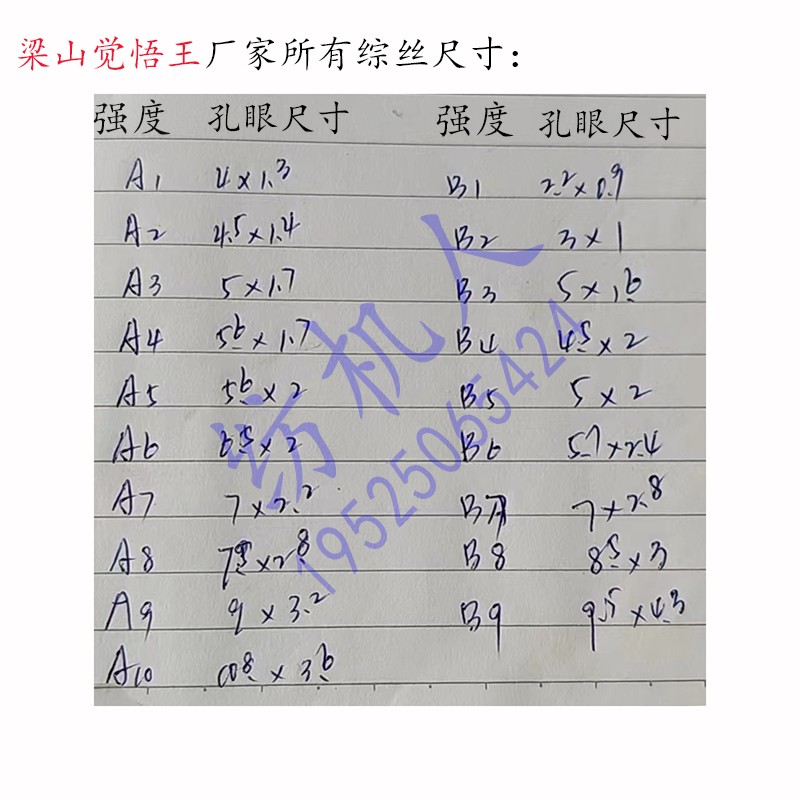 梁山觉悟王厂家所有综丝尺寸：
强度 孔眼尺寸 强度 孔眼尺寸
A1 4×1.3 B1 2.2×0.9
A2 4.5×1.4 B2 3×1
A3 5×1.7 B3 5×1.6
A4 5.6×1.7 B4 4.5×2
A5 5.6×2 B5 5×2
A6 6.5×2 B6 5.7×2.4
A7 7×2.2 B7 7×2.8
A8 2.8 B8 8.5×3
A9 9×3.2 B9 9.5×4.3
A10 10.8×3.6
纺机人
19525065424